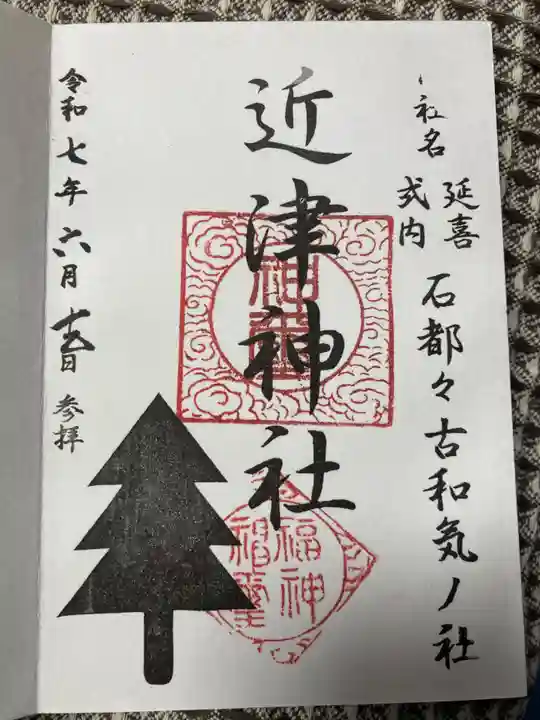 社名
延喜
式内
石都々古和気ノ社
近津神社
福神
令和七年六月十五日 参拝